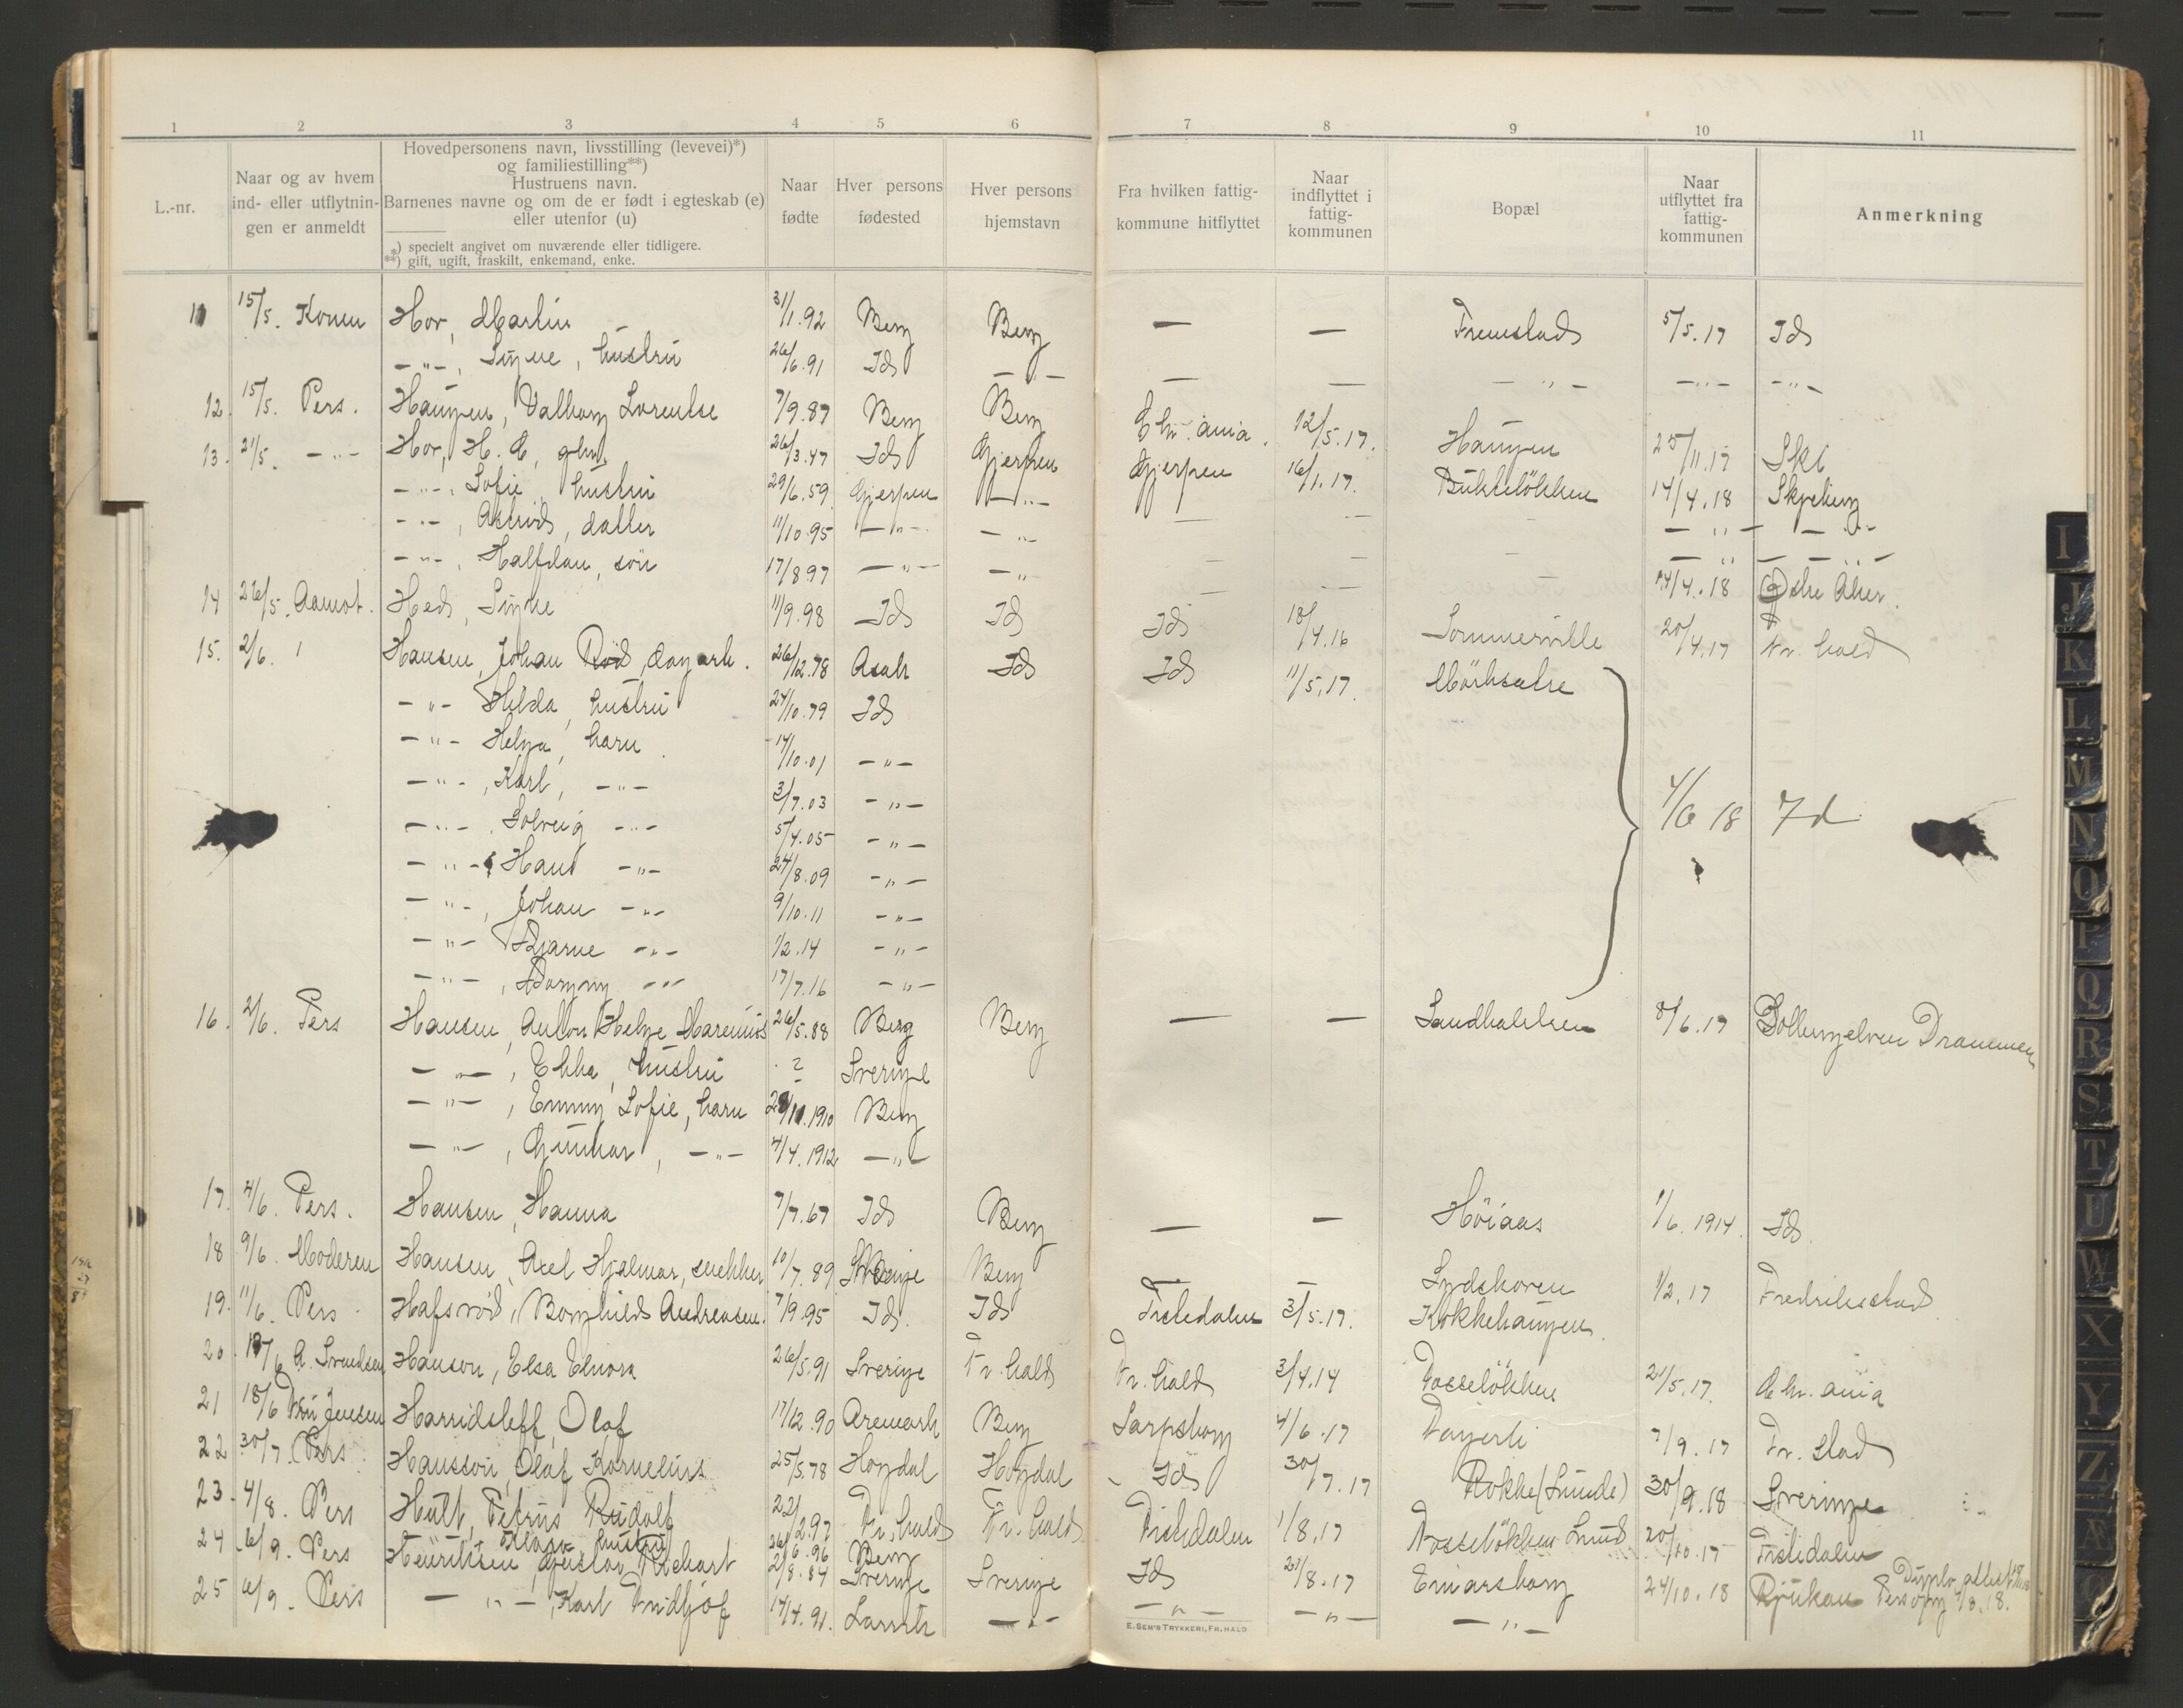 1 2 3 4 5 6 7 8 9 10 11
L.-nr.
Naar og av hvem ind- eller utflytningen er anmeldt
Hovedpersonens navn, livsstilling (levevei)*)
og familiestilling**)
Hustruens navn.
Barnenes navne og om de er født i egteskab (e)
eller utenfor (u)
*) specielt angivet om nuværende eller tidligere.
**) gift, ugift, fraskilt, enkemand, enke.
Naar fødte
Hver persons fødested
Hver persons hjemstavn
Fra hvilken fattigkommune hitflyttet
Naar indflyttet i fattigkommunen
Bopæl
Naar utflyttet fra fattigkommunen
Anmerkning
11 15/5. Konen Hov, Martin 31/1.92 Berg Berg — — Fremstad 5/5.17 Ids
-"-, Signe, hustru 26/6.91 Ids -"- — — -"- -"- -"-
12. 15/5. Pers. Haugen, Valborg Lorentse 7/9.87 Berg Berg Chr.ania. 12/5.17. Haugen 25/11.17 Ski
13. 21/5. -"- Hov, H. C, 26/3.47 Ids Gjerpen Gjerpen 16/1.17. 14/4.18
-"-, Sofie, hustru 29/6.59. Gjerpen -"-
-"-, Astrid, datter 11/10.95 -"- -"- -"- -"-
-"-, Halfdan, sön 17/8 97 -"- -"- 14/4.18 Østre Aker.
14 26/5. Aamot. Hed, Signe 11/9.98 Ids Ids Ids 18/4.16 Sommerville 20/4.17 Fr. hald
15. 2/6. Hansen, Johan Röd, dagarb. 26/12.78 Asak Ids Ids 11/5.17. Mörksælre
-"- Hilda, hustru 24/10.79 Ids
-"- Helga, barn 14/10.01 -"-
-"-, Karl, -"- 3/7.03 -"- 4/6 18 Id
-"-, Solveig -"- 5/4.05 -"-
-"- Hans -"- 24/8.09 -"-
-"-, Johan -"- 9/10.11 -"-
-"- Bjarne -"- 1/2.14 -"-
-"-, Dagny -"- 17/7.16 -"-
16. 2/6. Pers Hansen, Anton Helge Marenius 26/5.88 Berg Berg — — Sandbakken 8/6.17 Drammen
-"-, Ebba, hustru ? Sverige
-"-, Emmy Sofie, barn 1910 Berg
-"-, Gunnar, -"- 4/4.1912 -"-
17. 4/6. Pers. Hansen, Hanna 7/7.67 Ids Berg — — Höiaas 1/6.1914. Ids.
18 9/6. Moderen Hansen, Axel Hjalmar, snekker 10/7.89 Sverige Berg Sydskoven 1/2.17 Fredriksstad
19. 11/6. Pers. Hafsröd, Borghild Andreasen. 7/9.95 Ids. Ids Tistedalen 3/5.17. Kokkehaugen.
20. A. Svendsen Hanson, Elsa Elnora 26/5.91 Sverige Fr. hald Fr. hald 3/4.14 Fosseløkken 21/5.17. Chr.ania
21 18/6 Fru Jensen Harridsleff, Olaf 17/12.90 Aremark Berg Sarpsborg 4/6.17 7/9.17 Fr. stad
22 30/7. Pers. Hansson, Olaf Kornelius 25/5.78 Hogdal Hogdal Ids 30/7.17 Rokke (Lunde) 30/9.18 Sverige
23. 4/8. Pers Hult, Petrus Rudolf 22/2.97 Fr. hald Fr. hald Tistedalen 1/8.17 Fosseløkken Lund 20/10.17 Tistedalen
hustru 26/6.96 Berg
24 6/9. Pers Henriksen, Gustav Richart 2/8.84 Sverige Sverige Ids 21/8.17 Einarsborg 24/10.18 Rjukan
25 6/9. Pers -"-, Karl Fridtjof 14/4.91. Larvik -"- -"- -"- -"-
E. SEM'S TRYKKERI, FR.HALD
I
J
K
L
M
N
O
P
Q
R
S
T
U
W
X
Y
Z
Æ
Ø